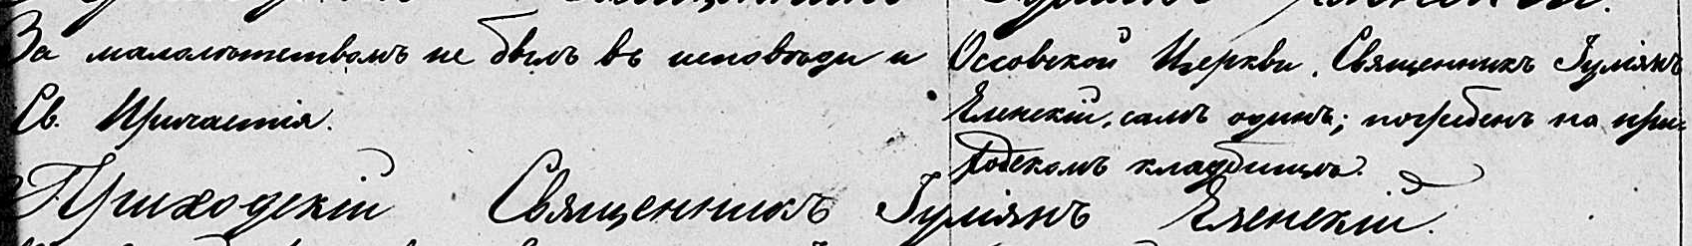 За малолѣтствомъ не былъ въ исповѣди и
Св. Причастія.
Оссовской Церкви. Священникъ Іуліянъ
Еленскій, самъ одинъ; погребенъ на при-
ходскомъ кладбищѣ.
Приходскій Священникъ Іуліянъ Еленскій.